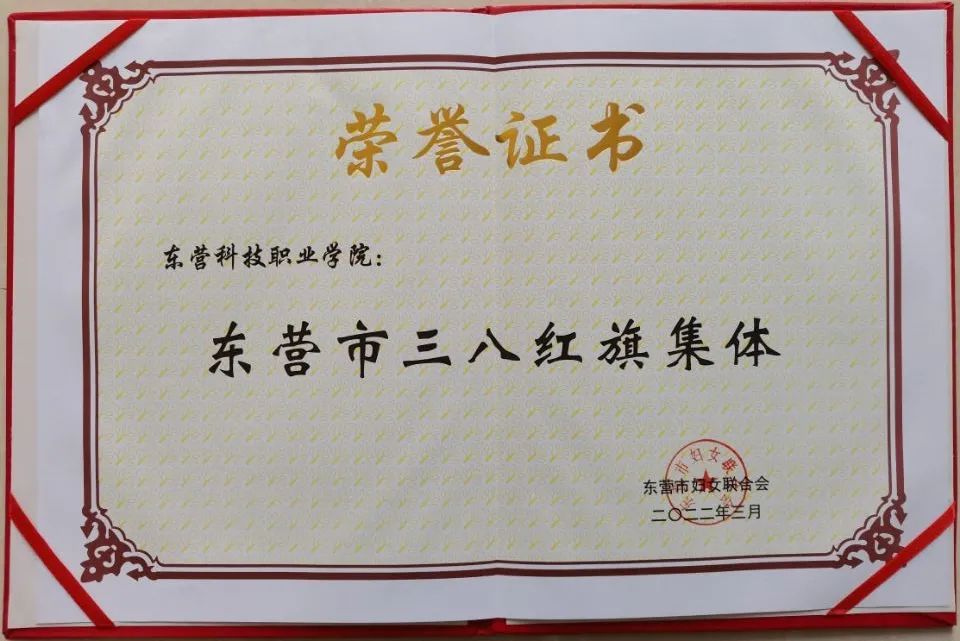 荣誉证书
东营科技职业学院：
东营市三八红旗集体
东营市妇女联合会
二〇二二年三月